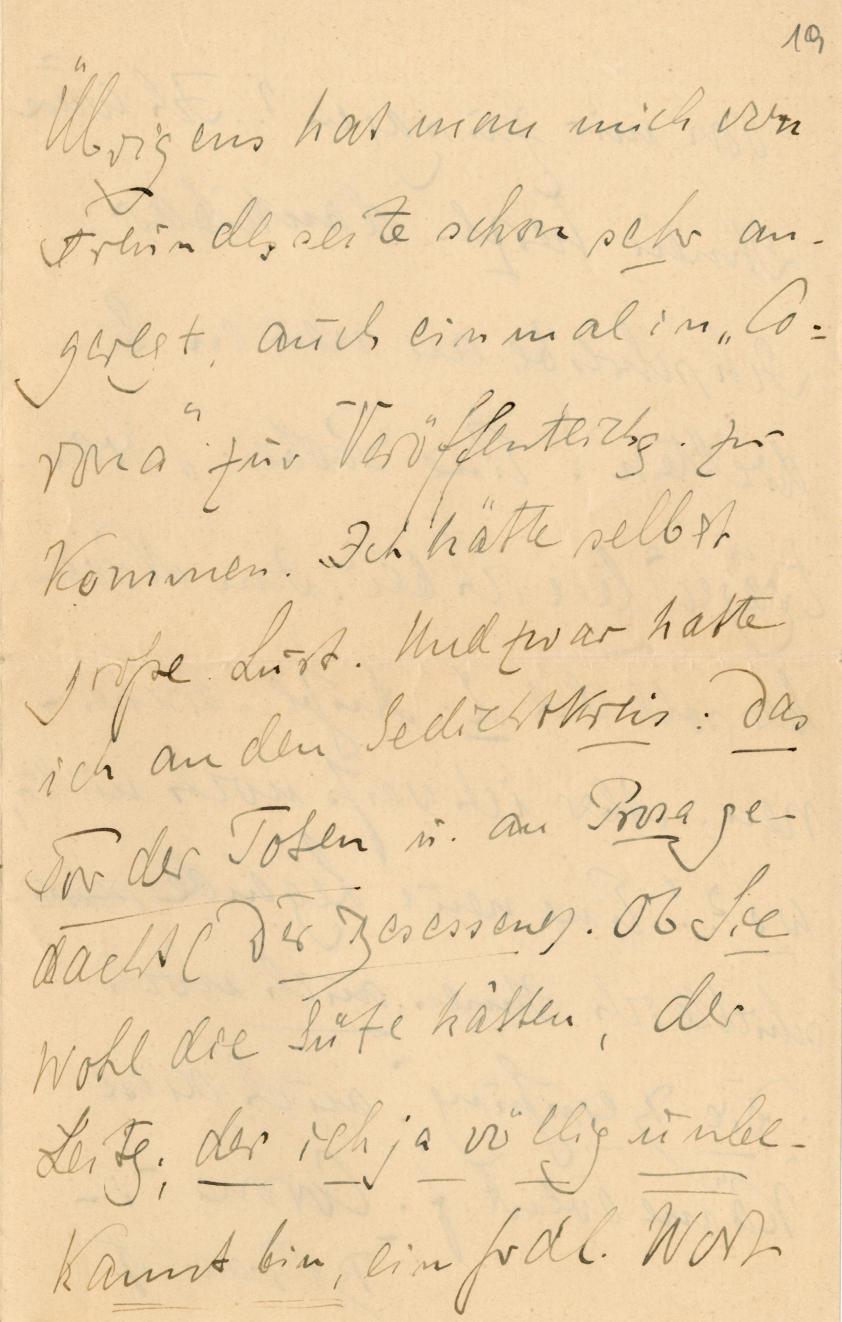 19
Übrigens hat man mich von
Freundesseite schon sehr an-
geregt, auch einmal in „Co-
rona“ zur Veröffentlichg. zu
kommen. Ich hätte selbst
große Lust. Und zwar hatte
ich an den Gedichtkreis: Das
Tor der Toten u. an Prosa ge-
dacht (Der Besessene). Ob Sie
wohl die Güte hätten, der
Leitg., der ich ja völlig unbe-
kannt bin, ein frdl. Wort